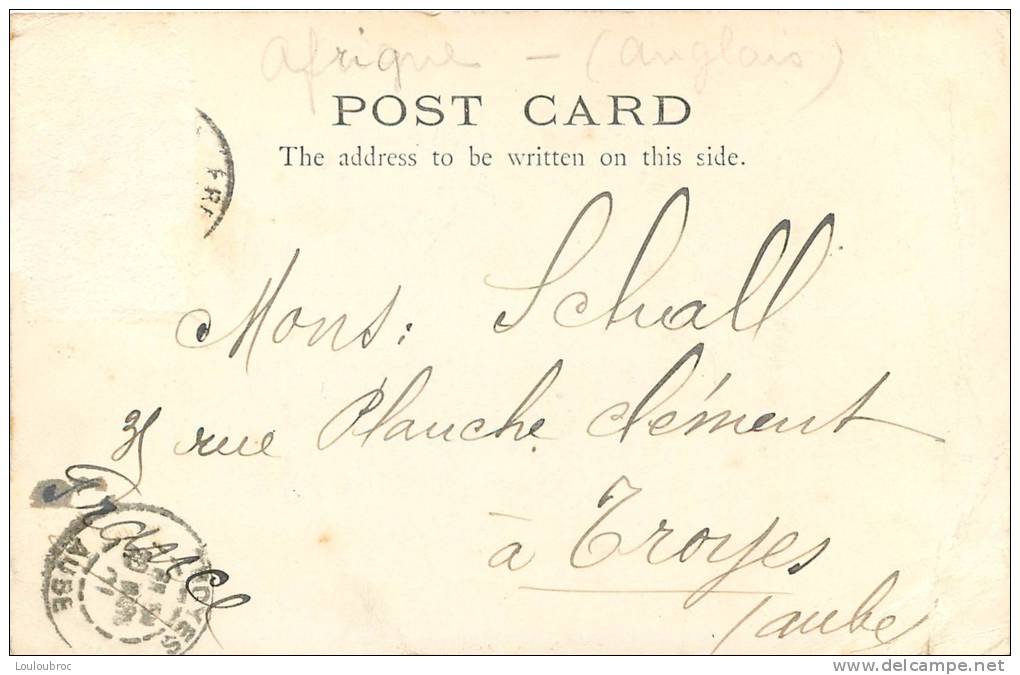 Afrique - (Anglais)
POST CARD
The address to be written on this side.
Mons: Schall
35 rue Planche Clément
à Troyes
(aube
France
TROYES
AUBE
Louloubroc
www.delcampe.net